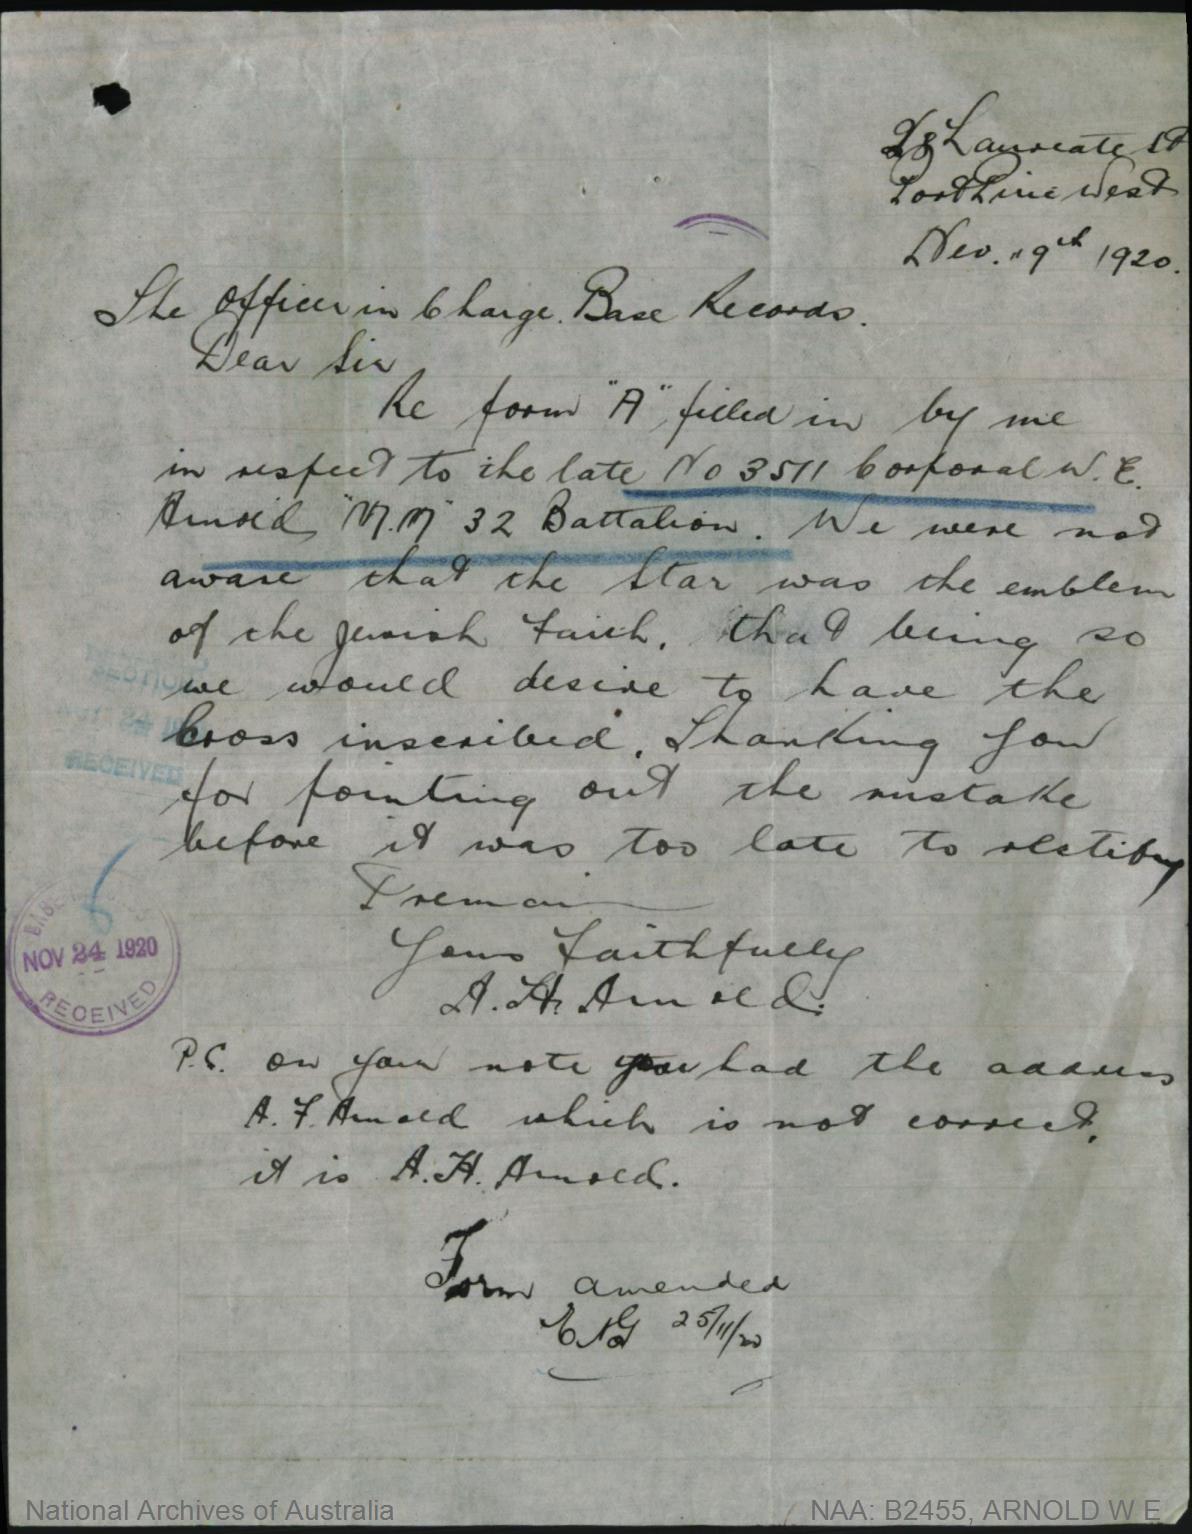 28 Laureate St
Port Pirie West
Nov. 19th 1920.
The Officer in Charge. Base Records.
Dear Sir
Re form "A" filled in by me
in respect to the late No 3511 Corporal W. E.
Arnold "M.M" 32 Battalion. We were not
aware that the Star was the emblem
of the Jewish Faith, that being so
we would desire to have the
Cross inscribed. Thanking you
for pointing out the mistake
before it was too late to
I remain
Yours Faithfully
A. H. Arnold.
P.S. on your note you had the address
A. F. Arnold which is not correct,
it is A. H. Arnold.
Form amended
25/11/20
SECTION
RECEIVED
NOV 24 1920
RECEIVED
National Archives of Australia
NAA: B2455, ARNOLD W E